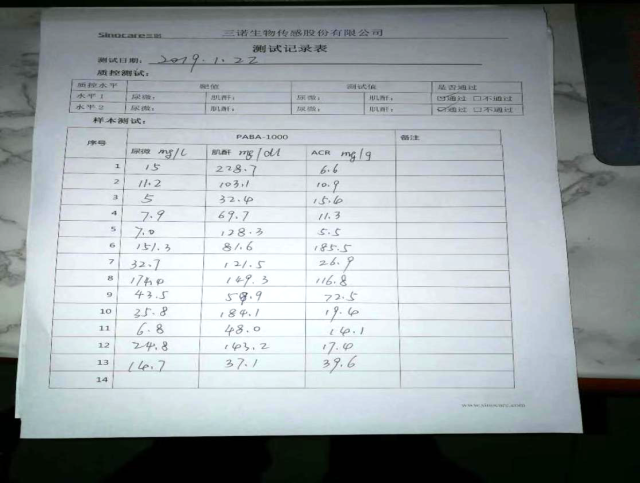 Sinocare三诺 三诺生物传感股份有限公司
测试记录表
测试日期: 2019.1.22
质控测试:
质控水平 靶值 测试值 是否通过
水平 1 尿微: 肌酐: 尿微: 肌酐: ☑通过 □不通过
水平 2 尿微: 肌酐: 尿微: 肌酐: ☑通过 □不通过
样本测试:
序号 PABA-1000 备注
尿微 mg/L 肌酐 mg/dl ACR mg/g
1 15 228.7 6.6
2 11.2 103.1 10.9
3 5 32.4 15.4
4 7.9 69.7 11.3
5 7.0 128.3 5.5
6 151.3 81.6 185.5
7 32.7 121.5 26.9
8 149.3 116.8
9 43.5 59.9 72.5
10 35.8 184.1 19.4
11 6.8 48.0 14.1
12 24.8 143.2 17.4
13 14.7 37.1 39.6
14
www.sinocare.com